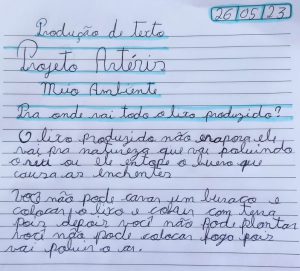 26/05/23
Produção de texto
Projeto Artéris
Meio Ambiente
Pra onde vai todo o lixo produzido?
O lixo produzido não evapora ele
vai pra natureza que vai poluindo
o ou ele entope o bueiro que
causa as enchentes
Você não pode cavar um buraco e
colocar o lixo e cobrir com terra
pois depois você não pode plantar
você não pode colocar fogo pois
vai poluir o ar.